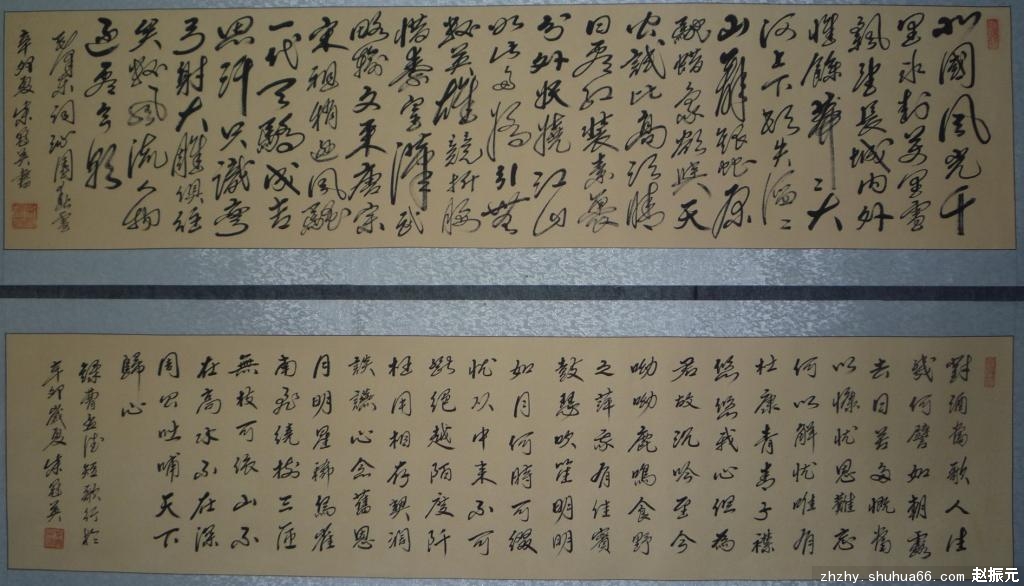 北國風光千
里冰封萬里雪
飄望長城內外
惟餘莽々大
河上下頓失滔々
山舞銀蛇原
馳蠟象欲與天
公試比高須晴
日看紅裝素裹
分外妖嬈江山
如此多嬌引無
數英雄競折腰
惜秦皇漢武
略輸文采唐宗
宋祖稍遜風騷
一代天驕成吉
思汗只識彎
弓射大雕俱往
矣數風流人物
還看今朝
毛澤東詞沁園春雪
辛卯夏朱冠英書
對酒當歌人生
幾何譬如朝露
去日苦多慨當
以慷忧思難忘
何以解忧唯有
杜康青青子襟
悠悠我心但為
君故沉吟至今
呦呦鹿鳴食野
之萍我有佳賓
鼓瑟吹笙明明
如月何時可綴
忧从中来不可
斷絕越陌度阡
枉用相存契闊
談讌心念舊恩
月明星稀烏雀
南飛繞樹三匝
無枝可依山不
在高水不在深
周公吐哺天下
歸心
錄曹孟德短歌行於
辛卯歲夏朱冠英
zhzhy.shuhua66.com 赵振元